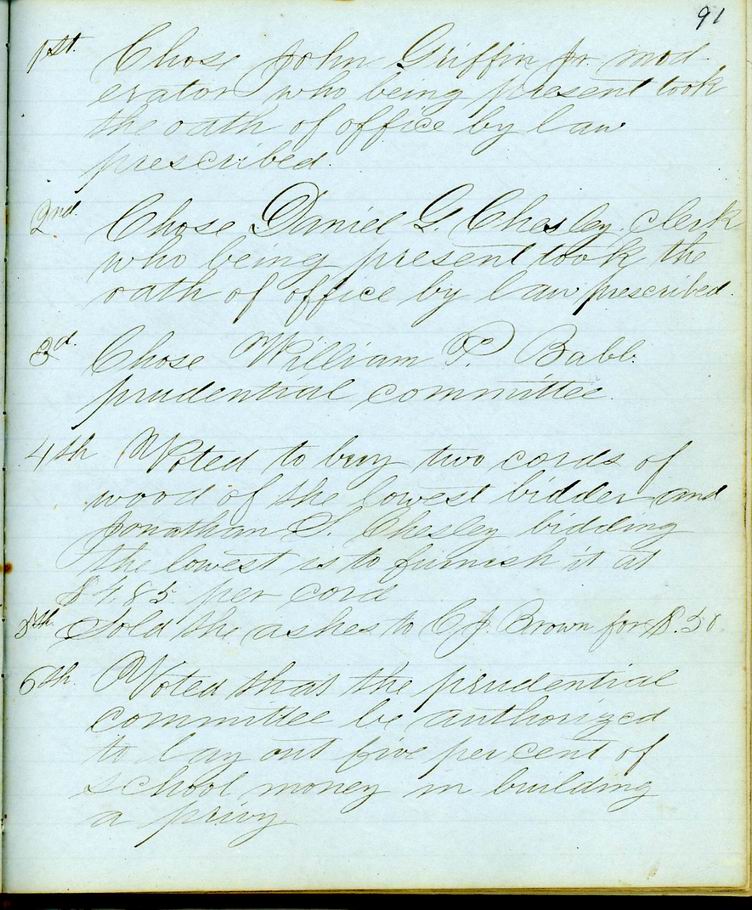 91
1st. Chose John Griffin Jr. mod-
erator who being present took
the oath of office by law
prescribed.
2nd. Chose Daniel G. Chesley clerk
who being present took the
oath of office by law prescribed.
3d. Chose William P. Babb
prudential committee.
4th Voted to buy two cords of
wood of the lowest bidder and
Jonathan S. Chesley bidding
the lowest is to furnish it at
$4.85 per cord
5th Sold the ashes to C. J. Brown for $.50.
6th. Voted that the prudential
committee be authorized
to lay out five per cent of
school money in building
a privy